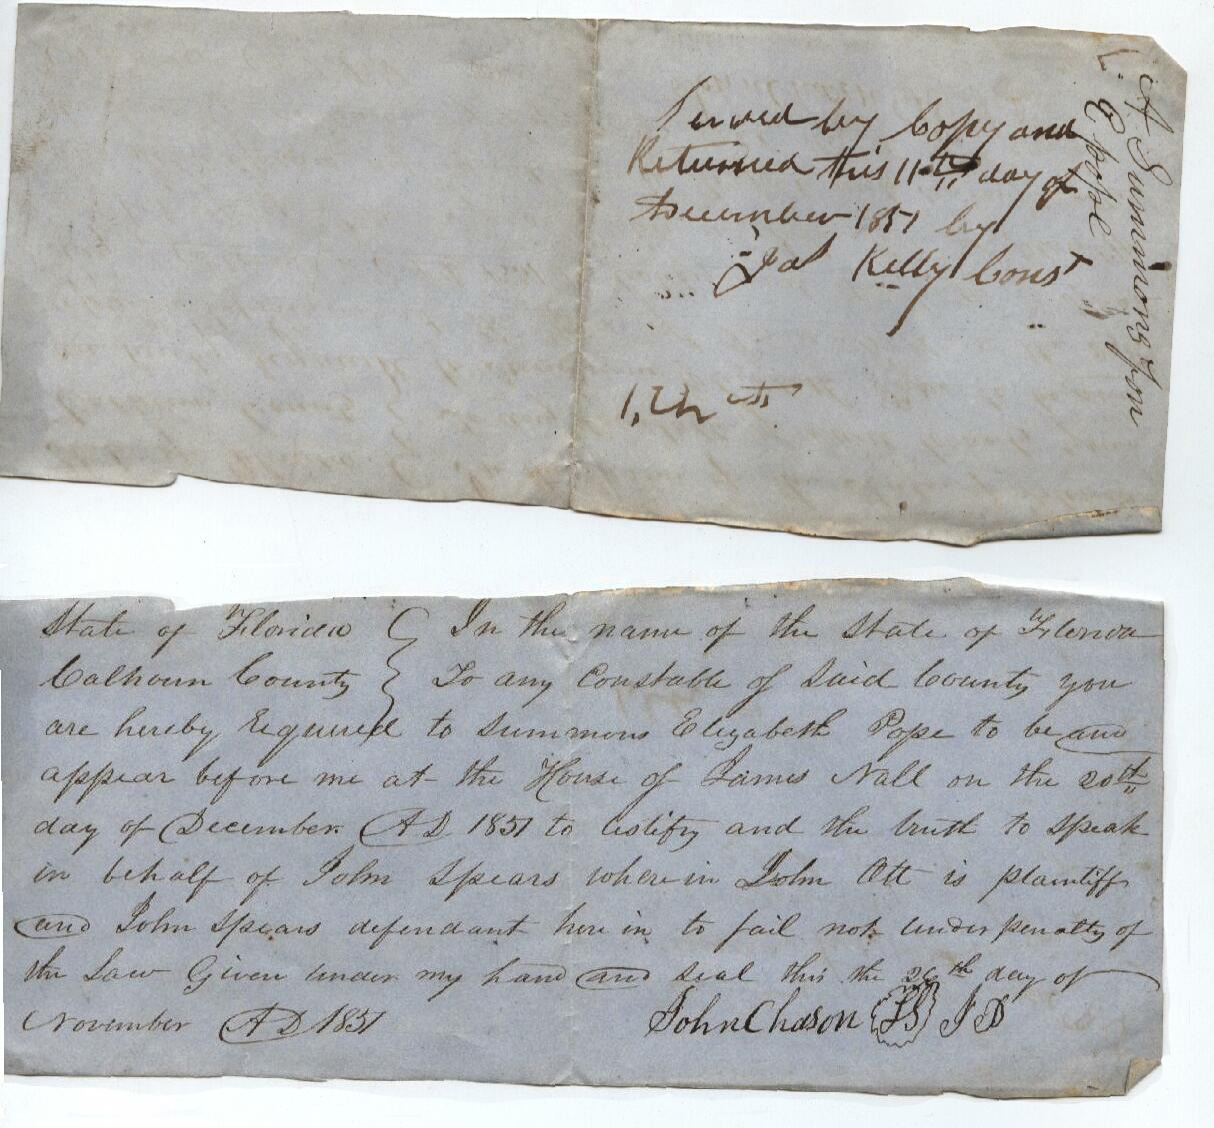 Served by Copy and
Returned this 11th day of
December 1851 by
Jas Kelly Const
A Summons for
E Pope
State of Florida } In the name of the State of Florida
Calhoun County } To any Constable of Said County you
are hereby required to summons Elizabeth Pope to be and
appear before me at the House of James Nall on the 20th
day of December AD 1851 to testify and the truth to speak
in behalf of John Spears where in John Ott is plaintiff
and John Spears defendant here in to fail not under penalty of
the Law Given under my hand and seal this the 26th day of
November AD 1851
John Chason LS J P